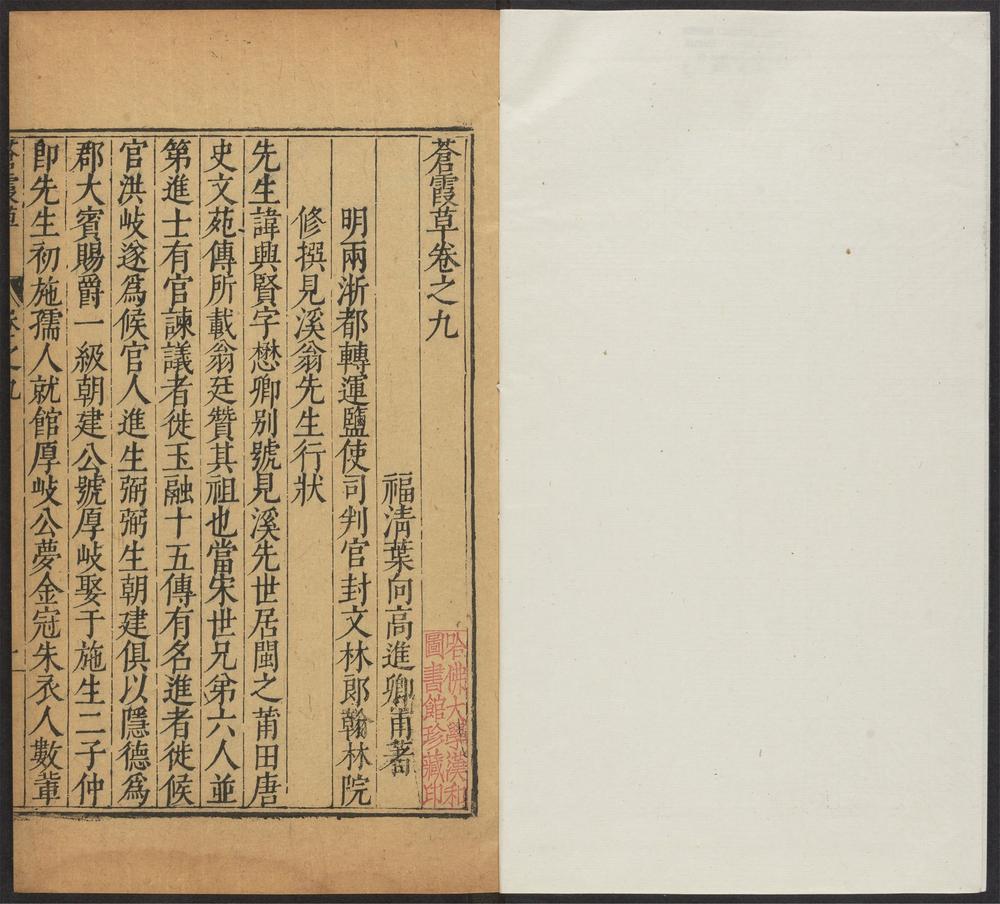 蒼霞草卷之九
福淸葉向高進卿甫著
明兩浙都轉運鹽使司判官封文林郎翰林院
修撰見溪翁先生行狀
先生諱興賢字懋卿别號見溪先世居閩之莆田唐
史文苑傳所載翁廷贊其祖也當宋世兄弟六人並
第進士有官諫議者徙玉融十五傳有名進者徙候
官洪岐遂爲候官人進生弼弼生朝建俱以隱德爲
郡大賓賜爵一級朝建公號厚岐娶于施生二子仲
卽先生初施孺人就館厚岐公夢金冠朱衣人數軰
蒼霞草
卷之九
一
哈佛大學漢和
圖書館珍藏印